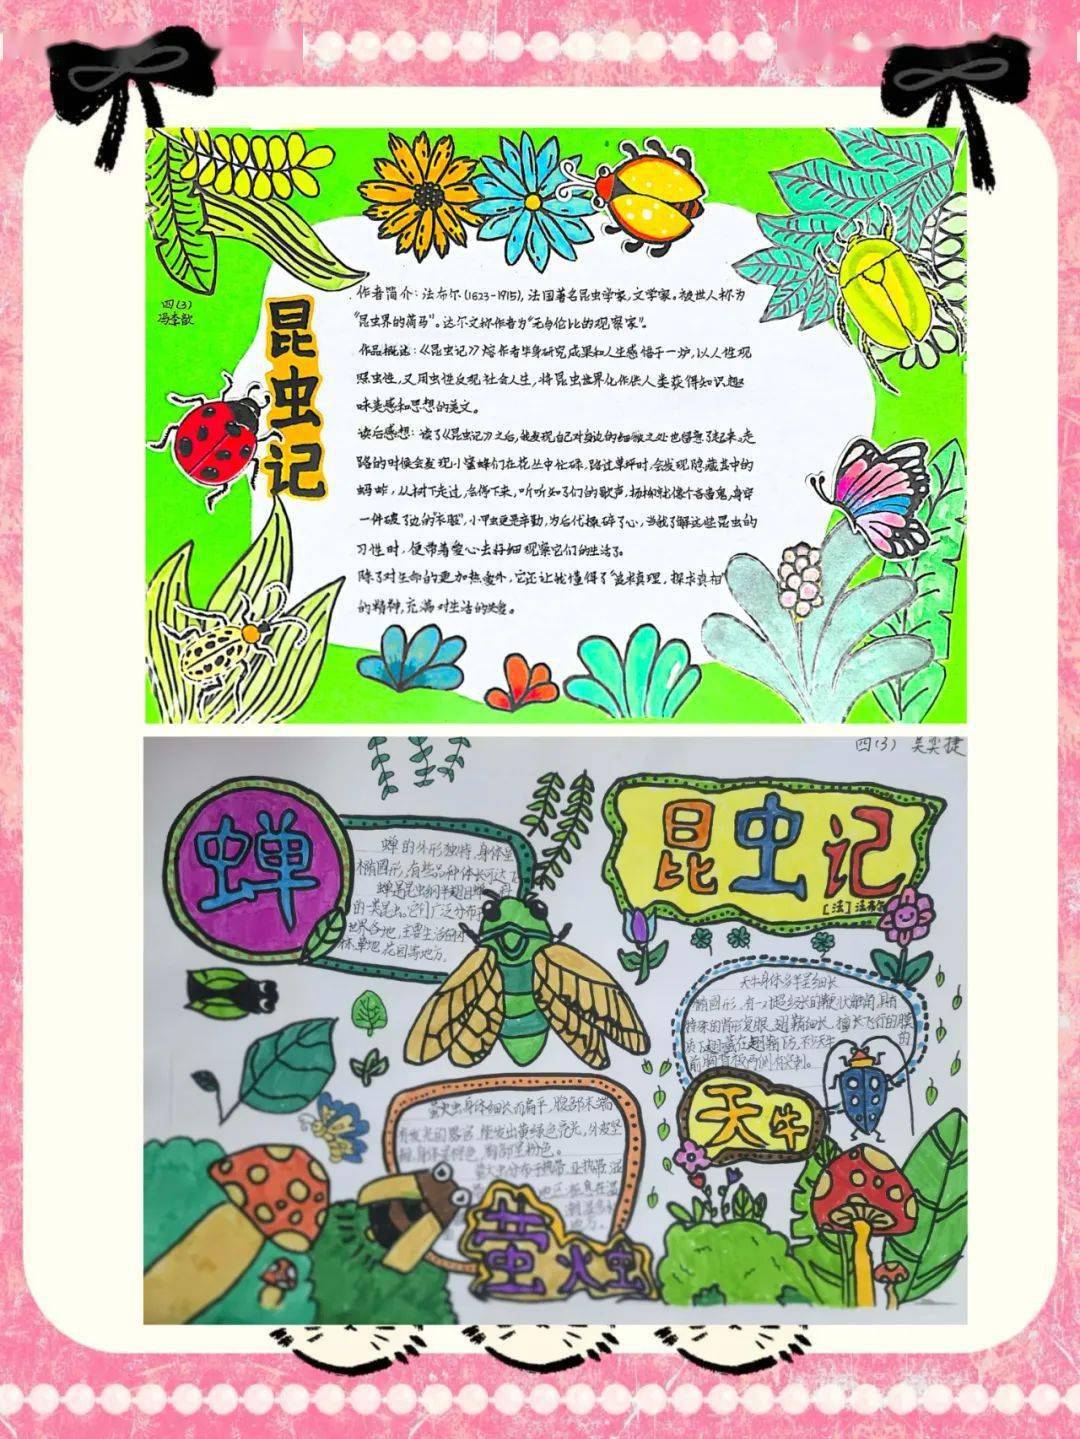 四(3)
冯李歆
昆虫记
作者简介：法布尔(1623-1915)，法国著名昆虫学家，文学家。被世人称为
“昆虫界的荷马”。达尔文称作者为“无与伦比的观察家”。
作品概述：《昆虫记》熔作者毕身研究成果和人生感悟于一炉，以人性观
照虫性，又用虫性反观社会人生，将昆虫世界化作供人类获得知识趣
味美感和思想的美文。
读后感想：读了《昆虫记》之后，我发现自己对身边的细微之处也留意了起来。走
路的时候会发现小蜜蜂们在花丛中忙碌，路过草坪时，会发现隐藏其中的
蚂蚱，从树下走过，会停下来，听听知了们的歌声，杨柳就像个吝啬鬼，身穿
一件破了边的“衣服”，小甲虫更是辛勤，为后代操碎了心，当我了解这些昆虫的
习性时，便带着爱心去仔细观察它们的生活了。
除了对生命的更加热爱外，它还让我懂得了“追求真理，探求真相”
的精神，充满对生活的
四(3) 吴奕捷
蝉
蝉的外形独特，身体呈
椭圆形，有些品种体长可达
蝉是昆虫纲半翅目蝉
的一类昆虫。它们广泛分布于
世界各地，主要生活在
林、草地、花园等地方。
昆虫记
[法]法布尔
天牛身体多半呈细长
椭圆形，有一对超级长的鞭状触角，具有
特殊的肾形复眼，翅鞘细长，擅长飞行的膜
质下翅藏在翅鞘下方，不少天牛的
前胸背板两侧有尖刺。
天牛
萤火虫身体细长而扁平，腹部末端
有发光的器官，能发出黄绿色荧光，外皮坚
韧，身体呈褐色，胸部呈粉色。
萤火虫分布于热带、亚热带、温
地区，栖息在温
潮湿多水
地方。
萤火虫